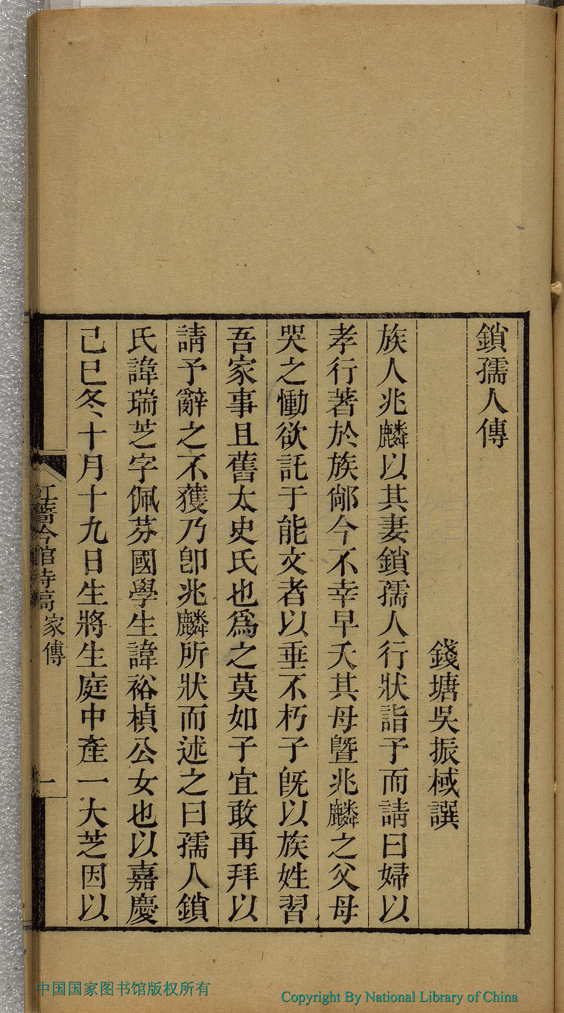 鎖孺人傳
錢塘吳振棫譔
族人兆麟以其妻鎖孺人行狀詣予而請曰婦以
孝行著於族鄰今不幸早夭其母曁兆麟之父母
哭之慟欲託于能文者以垂不朽子旣以族姓習
吾家事且舊太史氏也爲之莫如子宜敢再拜以
請予辭之不獲乃卽兆麟所狀而述之曰孺人鎖
氏諱瑞芝字佩芬國學生諱裕楨公女也以嘉慶
己巳冬十月十九日生將生庭中產一大芝因以
家傳
一
中国国家图书馆版权所有
Copyright By National Library of China